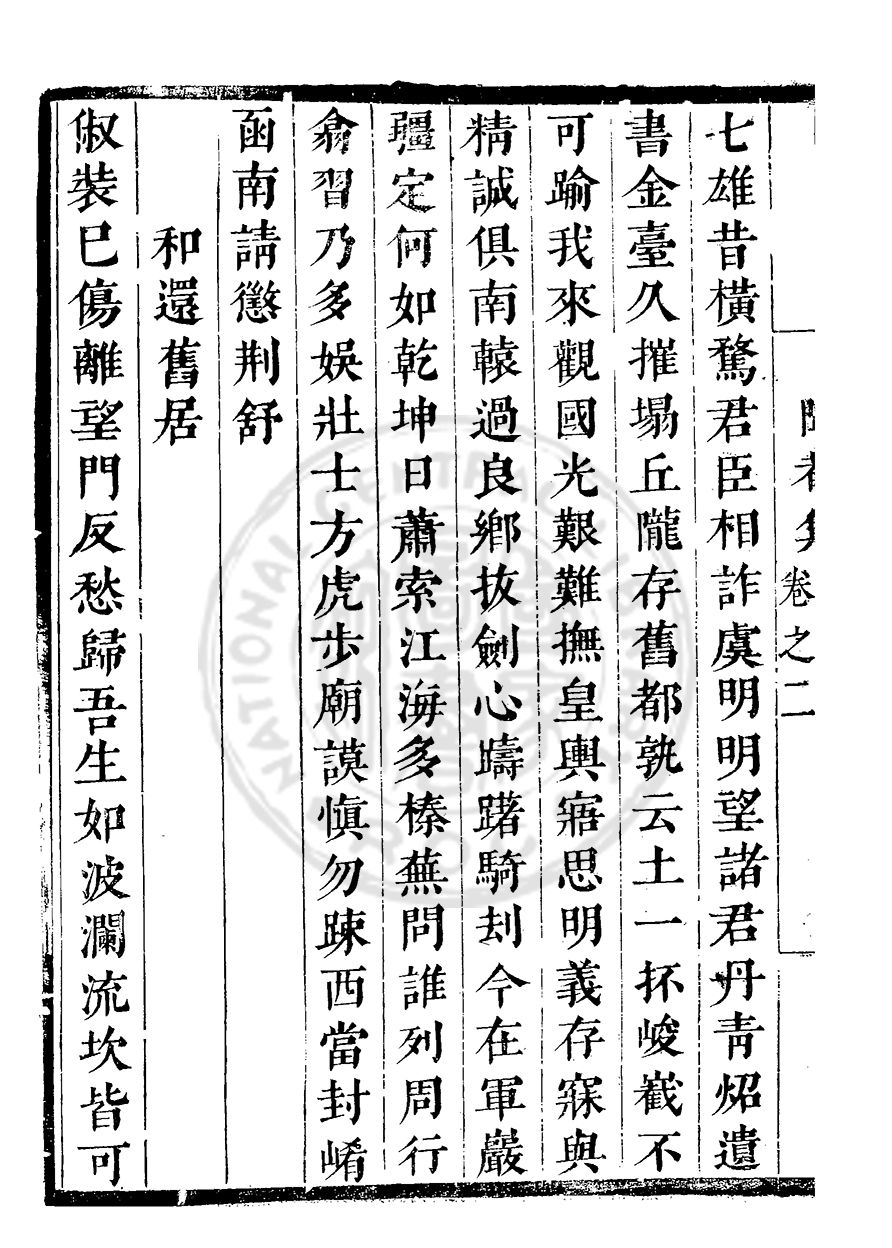 卷之二
七雄昔橫騖君臣相詐虞明明望諸君丹青炤遺
書金臺久摧塌丘隴存舊都孰云土一抔峻巀不
可踰我來觀國光艱難撫皇輿寤思明義存寐與
精誠俱南轅過良鄉拔劍心躊躇騎刦今在軍嚴
疆定何如乾坤日蕭索江海多榛蕪問誰列周行
翕習乃多娛壯士方虎步廟謨愼勿踈西當封崤
函南請懲荆舒
和還舊居
俶裝巳傷離望門反愁歸吾生如波瀾流坎皆可
NATIONAL CENTRAL LIBRARY